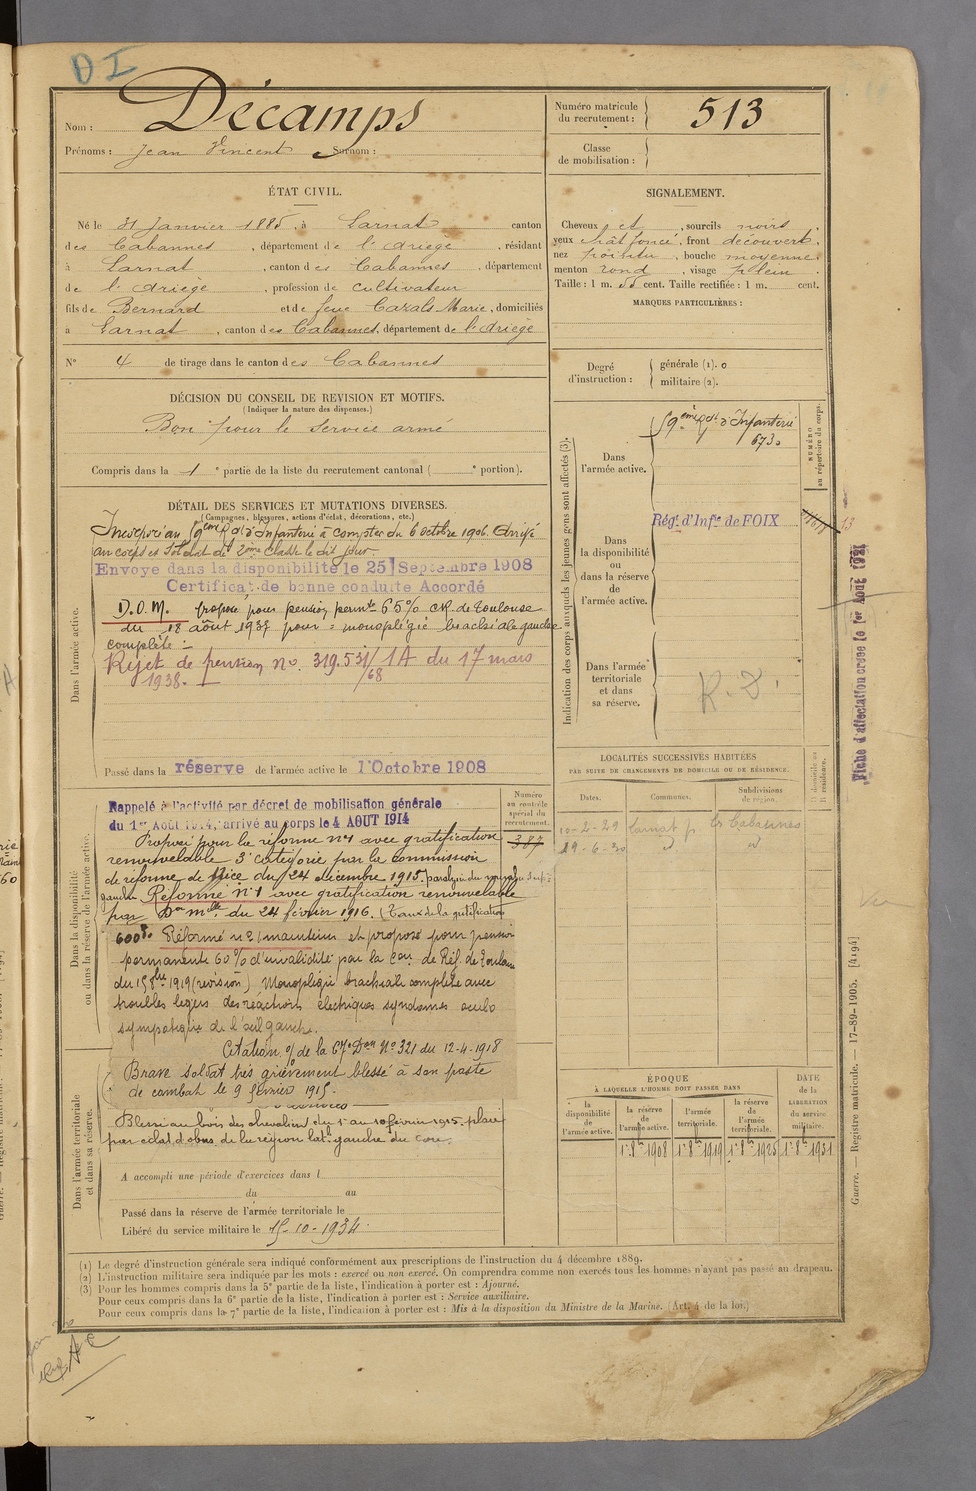 D I
Nom : Décamps
Prénoms : Jean Vincent Surnom :
Numéro matricule du recrutement : 513
Classe de mobilisation :
ÉTAT CIVIL.
Né le 31 Janvier 1885, à Larnat canton
des Cabannes, département de l'Ariège, résidant
à Larnat, canton des Cabannes, département
de l'Ariège, profession de cultivateur
fils de Bernard et de feue Cazals Marie, domiciliés
à Larnat, canton des Cabannes, département de l'Ariège
N° 4 de tirage dans le canton des Cabannes
SIGNALEMENT.
Cheveux et, sourcils noirs
yeux chât foncé, front découvert,
nez pointu, bouche moyenne
menton rond, visage plein.
Taille : 1 m. 55 cent. Taille rectifiée : 1 m. cent.
MARQUES PARTICULIÈRES :
Degré d'instruction :
générale (1). 0
militaire (2).
DÉCISION DU CONSEIL DE REVISION ET MOTIFS.
(Indiquer la nature des dispenses.)
Bon pour le service armé
Compris dans la 1e partie de la liste du recrutement cantonal ( e portion).
DÉTAIL DES SERVICES ET MUTATIONS DIVERSES.
(Campagnes, blessures, actions d'éclat, décorations, etc.)
Dans l'armée active.
Incorporé au 59ème Rgt d'Infanterie à compter du 6 octobre 1906. Arrivé
au corps et soldat de 2ème classe le dit jour.
Envoyé dans la disponibilité le 25 Septembre 1908
Certificat de bonne conduite Accordé
D.O.M. proposé pour pension permte 65% CR. de Toulouse
du 18 août 1937 pour : monoplégie brachiale gauche
complète :-
Rejet de pension no. 319.531/1A du 17 mars
1938. /68
Passé dans la réserve de l'armée active le 1er Octobre 1908
Indication des corps auxquels les jeunes gens sont affectés (3).
NUMÉRO au répertoire du corps.
Dans l'armée active.
59ème Rgt d'Infanterie
6730
Dans la disponibilité ou dans la réserve de l'armée active.
Régt d'Infie de FOIX
13
Dans l'armée territoriale et dans sa réserve.
Fiche d'affectation créée le 1er Août 1921
Dans la disponibilité ou dans la réserve de l'armée active.
Numéro au contrôle spécial du recrutement.
387
Rappelé à l'activité par décret de mobilisation générale
du 1er Août 1914, arrivé au corps le 4 AOUT 1914
Proposé pour la réforme n°1 avec gratification
renouvelable 3e catégorie par la commission
de réforme de Nice du 24 décembre 1915. paralysie du
gauche Réformé n°1 avec gratification renouvelable
par Don mlle du 24 février 1916. (Taux de la gratification
600f. Réformé n°2 maintenu et proposé pour pension
permanente 60% d'invalidité par la Con de Réf. de Toulouse
du 15 8bre 1919 (revision) Monoplégie brachiale complète avec
troubles légers des réactions électriques syndromes oculo
sympathique de l'œil gauche.
Citation o/ de la 67e Don N° 321 du 12-4-1918
Brave soldat très grièvement blessé à son poste
de combat le 9 février 1915.
Dans l'armée territoriale et dans sa réserve.
Blessé au bois des chevaliers du 1er au 10 février 1915. plaie
par éclat d'obus de la région lat. gauche du cou.
A accompli une période d'exercices dans l
du au
Passé dans la réserve de l'armée territoriale le
Libéré du service militaire le 15-10-1934.
LOCALITÉS SUCCESSIVES HABITÉES
PAR SUITE DE CHANGEMENTS DE DOMICILE OU DE RÉSIDENCE.
Dates. Communes. Subdivisions de région. D domicile ou R résidence.
10-2-29 Larnat p. les Cabannes
29-6-30 d° d°
ÉPOQUE
À LAQUELLE L'HOMME DOIT PASSER DANS
la disponibilité de l'armée active.
la réserve de l'armée active.
l'armée territoriale.
la réserve de l'armée territoriale.
DATE de la LIBÉRATION du service militaire.
1er 8bre 1908 1er 8bre 1919 1er 8bre 1925 1er 8bre 1931
Guerre. — Registre matricule. — 17-89-1905. [4194]
(1) Le degré d'instruction générale sera indiqué conformément aux prescriptions de l'instruction du 4 décembre 1889.
(2) L'instruction militaire sera indiquée par les mots : exercé ou non exercé. On comprendra comme non exercés tous les hommes n'ayant pas passé au drapeau.
(3) Pour les hommes compris dans la 5e partie de la liste, l'indication à porter est : Ajourné.
Pour ceux compris dans la 6e partie de la liste, l'indication à porter est : Service auxiliaire.
Pour ceux compris dans la 7e partie de la liste, l'indication à porter est : Mis à la disposition du Ministre de la Marine. (Art. 4 de la loi.)